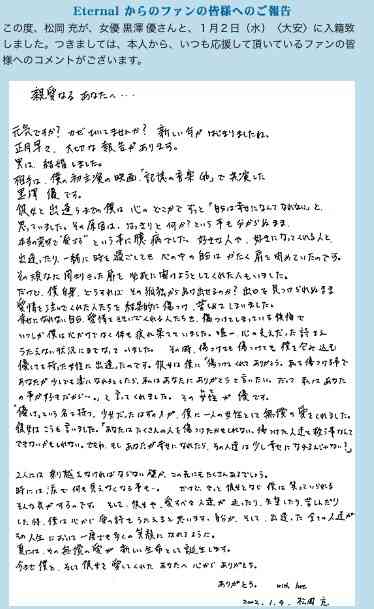 Eternal からのファンの皆様へのご報告
この度、松岡 充が、女優 黒澤 優さんと、１月２日（水）〈大安〉に入籍致
しました。つきましては、本人から、いつも応援して頂いているファンの皆
様へのコメントがございます。
親愛なる あなたへ…
元気ですか? カゼひいてませんか? 新しい年がはじまりましたね。
正月早々、大切な報告があります。
実は、結婚しました。
相手は、僕の初主演の映画「記憶の音楽 Gb」で共演した
黒澤 優です。
彼女と出逢うまでの僕は 心のどこかでずっと「自分は幸せになんてなれない」と、
思っていました。その原因は、はっきりと何か?という事も分からぬまま、
本当の意味で"愛する"という事に臆病でした。好きな人や、好きになってくれる人と、
出逢ったり一緒に時を過ごしても 心の中の扉はかたく扉を閉めていたのです。
その頑なに閉ざされた扉を 必死に開けようとしてくれた人もいました。
だけど、僕自身、どうすればその孤独から抜け出せるのか? 出口を見つけられぬまま
愛情を注いでくれた人たちを結果的に傷つけ、苦しめてしまいました。
幸せになれない自分、愛情をそそいでくれる人たちを、傷つけてしまっている後悔で
いつしか僕は心だけでなく体も疲れ果てていました。唯一 心の支えだった詩さえ
うたえない状況にまでなっていました。 その時、傷つけても傷つけても 僕を包み込む
優しさを持った女性に出逢ったのです。彼女は僕に「傷つけてくれてありがとう。私を傷つける事で
あなたが少しでも楽になれるとしたら、私はあなたにありがとうと言いたい。だって 私はあなた
の事が好きだから…。」と言ってくれました。その女性が 優です。
「優」という名を持つ、少女だったはずの人が、僕に一人の女性として無償の愛をくれました。
彼女はこうも言いました。「あなたはたくさんの人を傷つけたかもしれない。傷つけた人達を救う事なんて
できないかもしれない。でもね、もしあなたが幸せになれたら、その人達は少し幸せになるんじゃない?」
2人には 乗り越えなければならない壁が、この先にもたくさんあるでしょう。
時には涙で何も見えなくなる事も…。 だけど、きっと彼女となら 僕は笑っていられる
そんな気がするのです。そして、世界中の愛すべき人達が 迷ったり、失望したり、苦しんだり
した時、僕は心から愛の詩をうたえると思います。自分が、そして、出逢った全ての人達が
その人生において一度でも多くの笑顔になれるように。
夏には、その無償の愛が 新しい生命として誕生します。
今まで僕を、そして彼女を愛してくれた あなたへ 心から ありがとう。
ありがとう。 with love
2002.1.9. 松岡 充